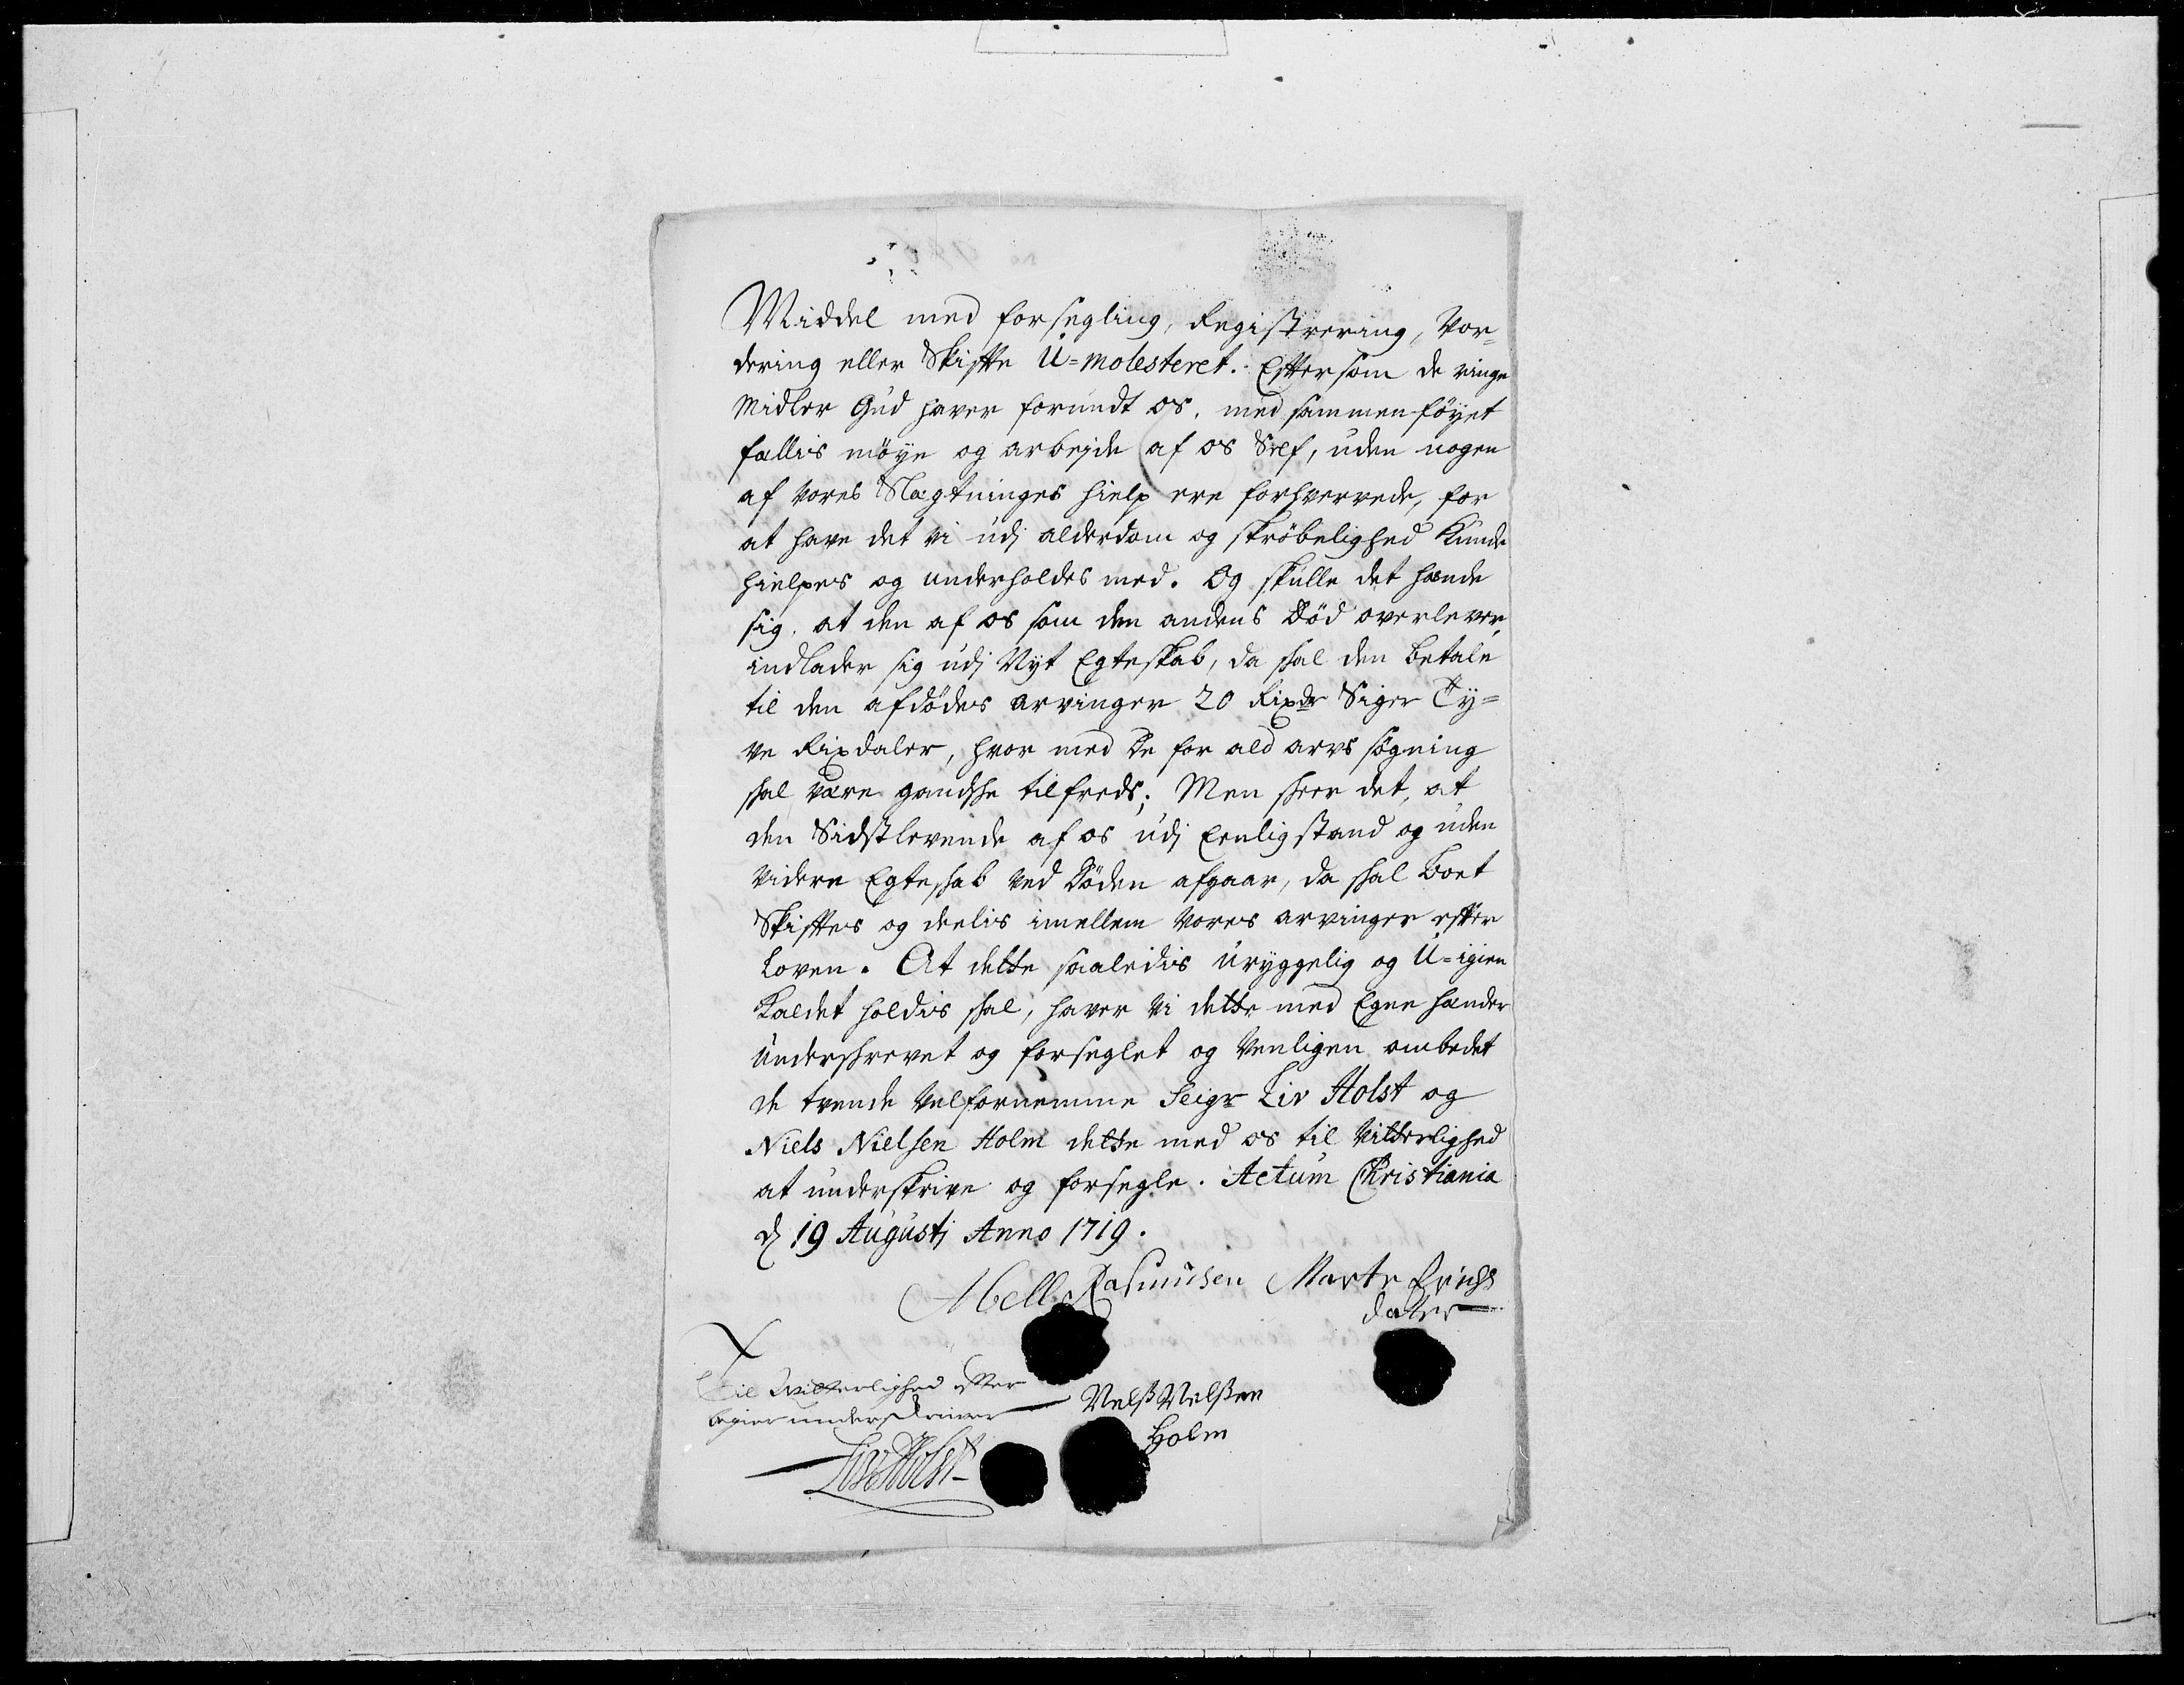 Middel med forsegling, Registrering, Vor-
dering eller Skifte U=molesteret. Eftersom de ringe
Midler Gud haver forundt os, med sammenføyet
fællis møye og arbejde af os Self, uden nogen
af vores Slægtninges hielp ere forhvervede, for
at have det vi udj alderdom og skrøbelighed kunde
hielpes og underholdes med. Og skulle det hænde
sig, at den af os som den andens Død overlever,
indlader sig udj Nyt Egteskab, da skal den betale
til den afdødes arvinger 20 Rixdr Siger Ty=
ve Rixdaler, hvor med De for ald arvs søgning
skal være gandske tilfreds; Men skeer det, at
den Sidstlevende af os udj Eenlig stand og uden
videre Egteskab ved Døden afgaar, da skal Boet
Skiftes og deelis imellem vores arvinger efter
Loven. At dette saaledis uryggelig og U=igien
kaldet holdis skal, haver vi dette med Egne hænder
underskrevet og forseglet og venligen ombedet
de tvende velfornemme Seigr Liv Holst og
Niels Nielsen Holm dette med os til vitterlighed
at underskrive og forsegle. Actum Christiania
d 19 Augustj Anno 1719.
Rasmusen Marte Erichs
dater
Til Witterlighed efter
begier underskriver
Nelß Nelßen
Holm
Liv Holst